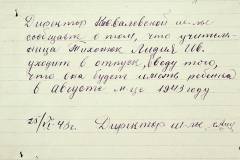 Директор Коваловской ш-лы
сообщает о том, что учитель-
ница Тихонюк Лидия Ив.
уходит в отпуск, ввиду того,
что она будет иметь ребенка
в Августе м-це 1943 году.
25/VI 43 г. Директор ш-лы